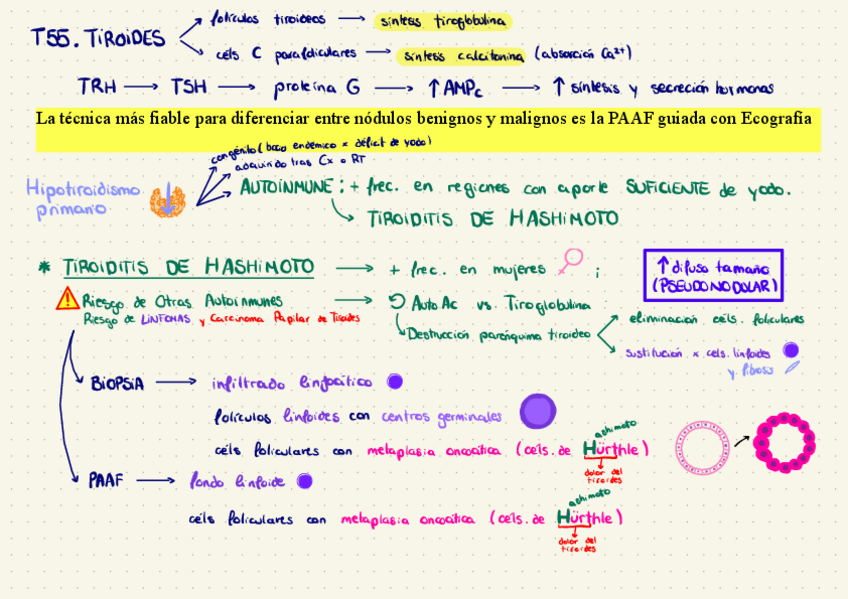 T55. TIROIDES
folículos tiroideos → síntesis tiroglobulina
céls C parafoliculares → síntesis calcitonina (absorción Ca²⁺)
TRH → TSH → proteína G → ↑ AMPc → ↑ síntesis y secreción hormonas
La técnica más fiable para diferenciar entre nódulos benignos y malignos es la PAAF guiada con Ecografía
congénito (bocio endémico x déficit de yodo)
adquirido tras Cx o RT
Hipotiroidismo primario
AUTOINMUNE: + frec. en regiones con aporte SUFICIENTE de yodo.
TIROIDITIS DE HASHIMOTO
* TIROIDITIS DE HASHIMOTO → + frec. en mujeres ;
↑ difuso tamaño
(PSEUDONODULAR)
Riesgo de Otras Autoinmunes → Auto Ac vs. Tiroglobulina
Riesgo de LINFOMAS y Carcinoma Papilar de Tiroides
Destrucción parénquima tiroideo
eliminación céls. foliculares
sustitución x cels. linfoides
y fibosis
BIOPSIA → infiltrado linfocítico
folículos linfoides con centros germinales
ashimoto
céls foliculares con metaplasia oncocítica (céls. de Hürthle)
dolor del
tiroides
PAAF → fondo linfoide
ashimoto
céls foliculares con metaplasia oncocítica (céls. de Hürthle)
dolor del
tiroides